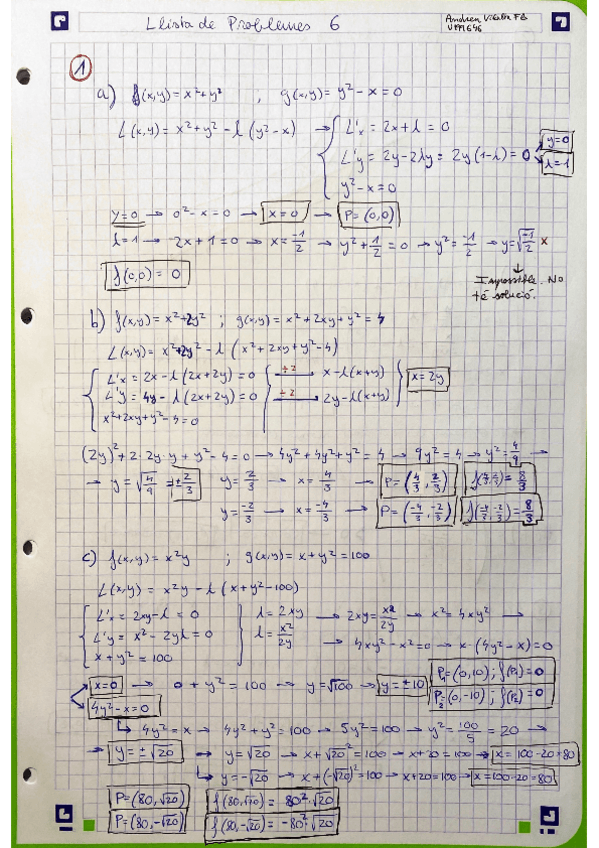 Llista de Problemes 6
1
a) f(x,y) = x²+y² , g(x,y) = y² - x = 0
L(x,y) = x²+y² - l (y²-x) → L'x = 2x + l = 0
L'y = 2y - 2ly = 2y (1-l) = 0 y=0
l=1
y² - x = 0
y=0 → 0² - x = 0 → x=0 → P= (0,0)
l=1 → 2x+1=0 → x= -1/2 → y² + 1/2 = 0 → y² = -1/2 → y= √-1/2 x
f(0,0) = 0
Impossible. No
té solució.
b) f(x,y) = x²+2y² ; g(x,y) = x² + 2xy + y² = 4
L(x,y) = x²+2y² - l (x² + 2xy + y² - 4)
L'x = 2x - l (2x+2y) = 0 ÷2 → x - l(x+y)
L'y = 4y - l (2x+2y) = 0 ÷2 → 2y - l(x+y) x = 2y
x²+2xy+y²-4=0
(2y)² + 2·2y·y + y² - 4 = 0 → 4y² + 4y² + y² = 4 → 9y² = 4 → y² = 4/9 →
→ y = √4/9 = ±2/3 y= 2/3 → x= 4/3 → P= (4/3, 2/3) f(4/3, 2/3) = 8/3
y= -2/3 → x= -4/3 → P= (-4/3, -2/3) f(-4/3, -2/3) = -8/3
c) f(x,y) = x²y ; g(x,y) = x + y² = 100
L(x,y) = x²y - l (x + y² - 100)
L'x = 2xy - l = 0 l = 2xy → 2xy = x²/2y → x² = 4xy² →
L'y = x² - 2yl = 0 l = x²/2y → 4xy² - x² = 0 → x·(4y² - x) = 0
x + y² = 100
x=0 → 0 + y² = 100 → y = √100 → y = ±10 P₁=(0,10) ; f(P₁) = 0
4y² - x = 0 P₂=(0,-10) ; f(P₂) = 0
4y² = x → 4y² + y² = 100 → 5y² = 100 → y² = 100/5 = 20 →
→ y = ±√20 → y = √20 → x + √20² = 100 → x + 20 = 100 → x = 100 - 20 = 80
y = -√20 → x + (-√20)² = 100 → x + 20 = 100 → x = 100 - 20 = 80
P= (80, √20) f(80, √20) = 80²·√20
P= (80, -√20) f(80, -√20) = -80²·√20